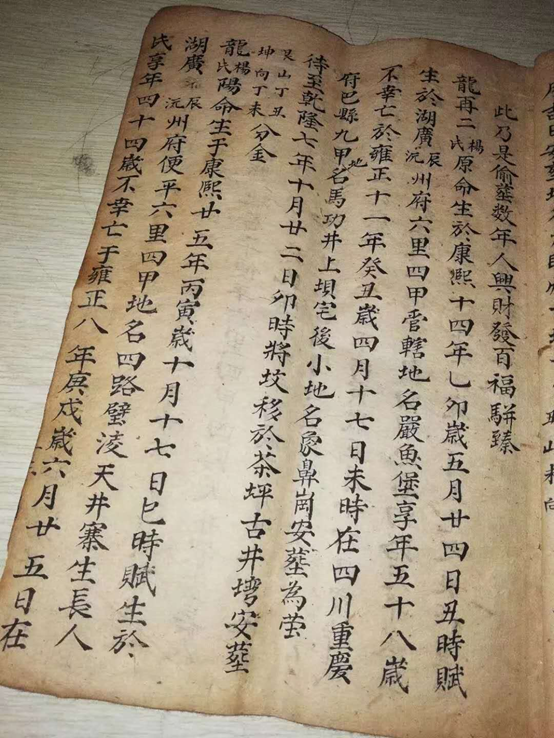 此乃是偷塟数年人興財發百福駢臻
龍再二楊氏原命生於康熙十四年乙卯歲五月廿四日丑時賦
生於湖廣辰沅州府六里四甲管轄地名嚴魚堡享年五十八歲
不幸亡於雍正十一年癸丑歲四月十七日未時在四川重慶
府巴縣九甲地名馬功井上垻宅後小地名象鼻崗安塟為茔
待至乾隆七年十月廿二日卯時將坟移於茶坪古井塆安塟
艮山丁丑
坤向丁未分金
龍楊氏陽命生于康熙廿五年丙寅歲十月十七日巳時賦生於
湖廣辰沅州府便平六里四甲地名四路壁凌天井寨生長人
氏享年四十四歲不幸亡于雍正八年庚戌歲六月廿五日在